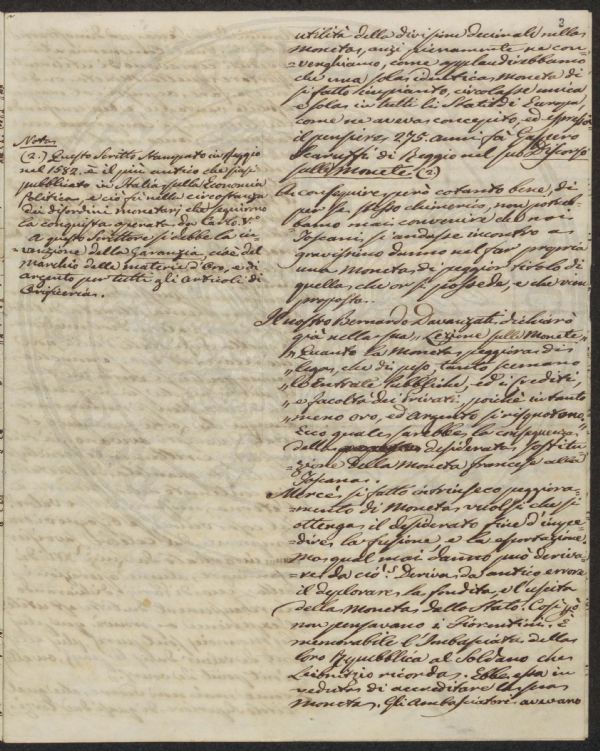 3
utilità della divisione decimale nella
Moneta, anzi pienamente ne con-
=venghiamo, come applaudirebbamo
che una sola identica Moneta di
sì fatto impianto, circolasse unica
e sola in tutti li Stati di Europa,
come ne aveva concepito, ed espresso
il pensiere 275. anni fà Gasparo
Scaruffi di Reggio nel suo Discorso
sulle Monete (2)
Nota
(2.) Questo Scritto Stampato in Reggio
nel 1582. è il più antico che siasi
pubblicato in Italia sulla Economia
Politica, e ciò fù nella circostanza
dei disordini monetarj che seguirono
la conquista operata da Carlo V.º
A questo Scrittore si debbe la in-
=venzione della Garanzia, cioè del
marchio delle materie d'Oro, e di
argento per tutti gli articoli di
Orificeria.
A conseguire però cotanto bene, di
per se stesso chimerico, non potreb-
=bamo mai convenire che noi
Toscani si andasse incontro a
gravissimo danno nel far propria
una Moneta di peggior titolo di
quella che or si possiede, e che vien
proposta.
Il nostro Bernardo Davanzati dichiarò
già nella sua Lezione sulle Monete
„ Quanto la Moneta peggiora di
„ lega, che di peso, tanto scemano
„ le Entrate Pubbliche, ed i crediti,
„ e facoltà dei Privati, poichè in tanto
„ meno oro, ed Argento si riscuotono.
Ecco quale sarebbe la conseguenza
della desiderata sostitu-
=zione della Moneta francese alla
Toscana.
Mercè sì fatto intrinseco peggiora-
=mento di Moneta vuolsi che si
ottenga il desiderato fine d'impe-
=dire la fusione e la esportazione.
Ma qual mai danno può deriva-
=re da ciò? Deriva da antico errore
il deplorare la fondita, e l'uscita
della Moneta dallo Stato. Così però
non pensavano i Fiorentini. È
memorabile l'Imbasciata della
loro Repubblica al Soldano che
Leibnitzio ricorda. Ebbe essa in
veduta di accreditare la sua
Moneta. Gli Ambasciatori avevano